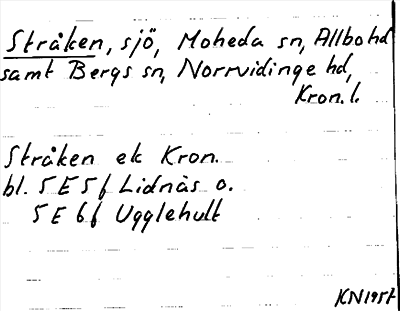 Stråken, sjö, Moheda sn, Allbo hd
samt Bergs sn, Norrvidinge hd,
Kron. l.
Stråken ek Kron.
bl. 5 E 5 f Lidnäs o.
5 E 6 f Ugglehult
KN 1957